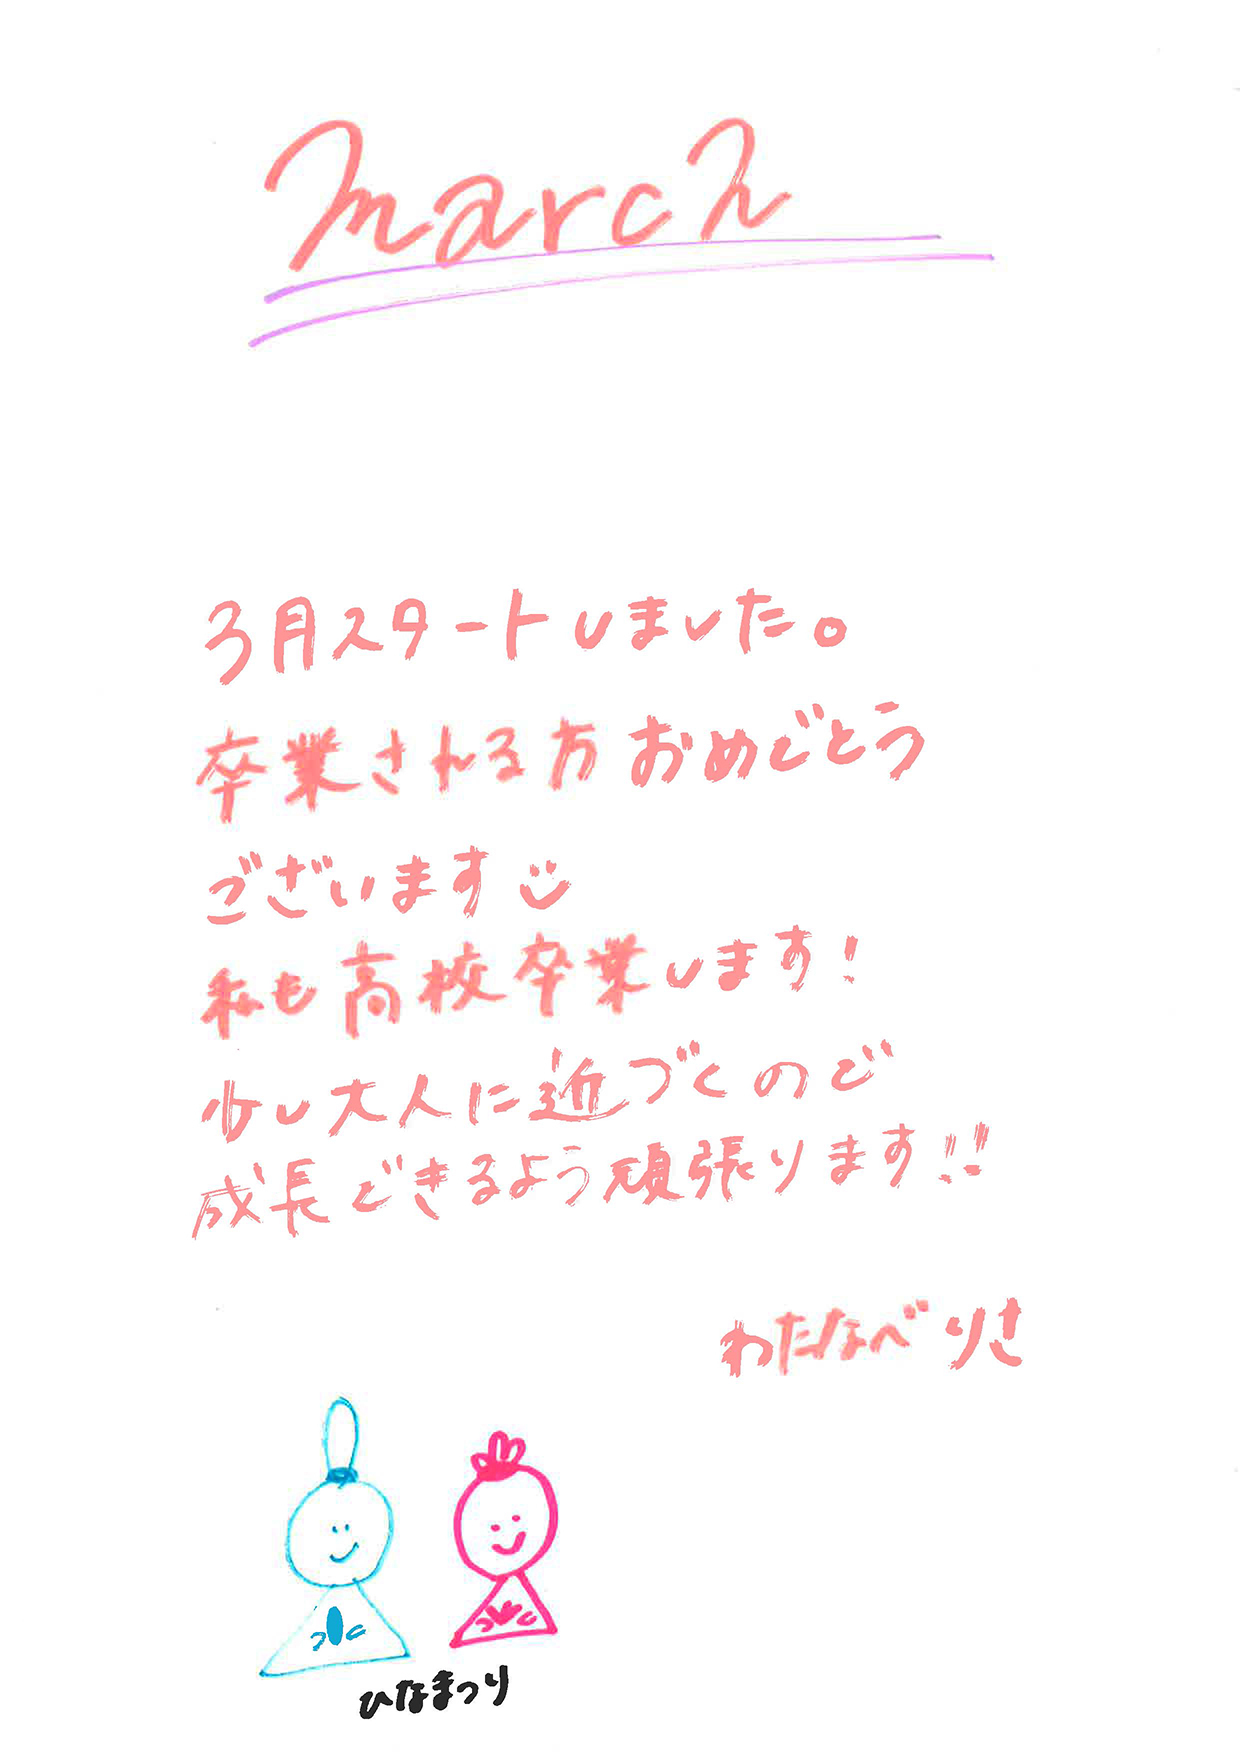 March
3月スタートしました。
卒業される方おめでとう
ございます
私も高校卒業します!
少し大人に近づくので
成長できるよう頑張ります!!
わたなべりさ
ひなまつり